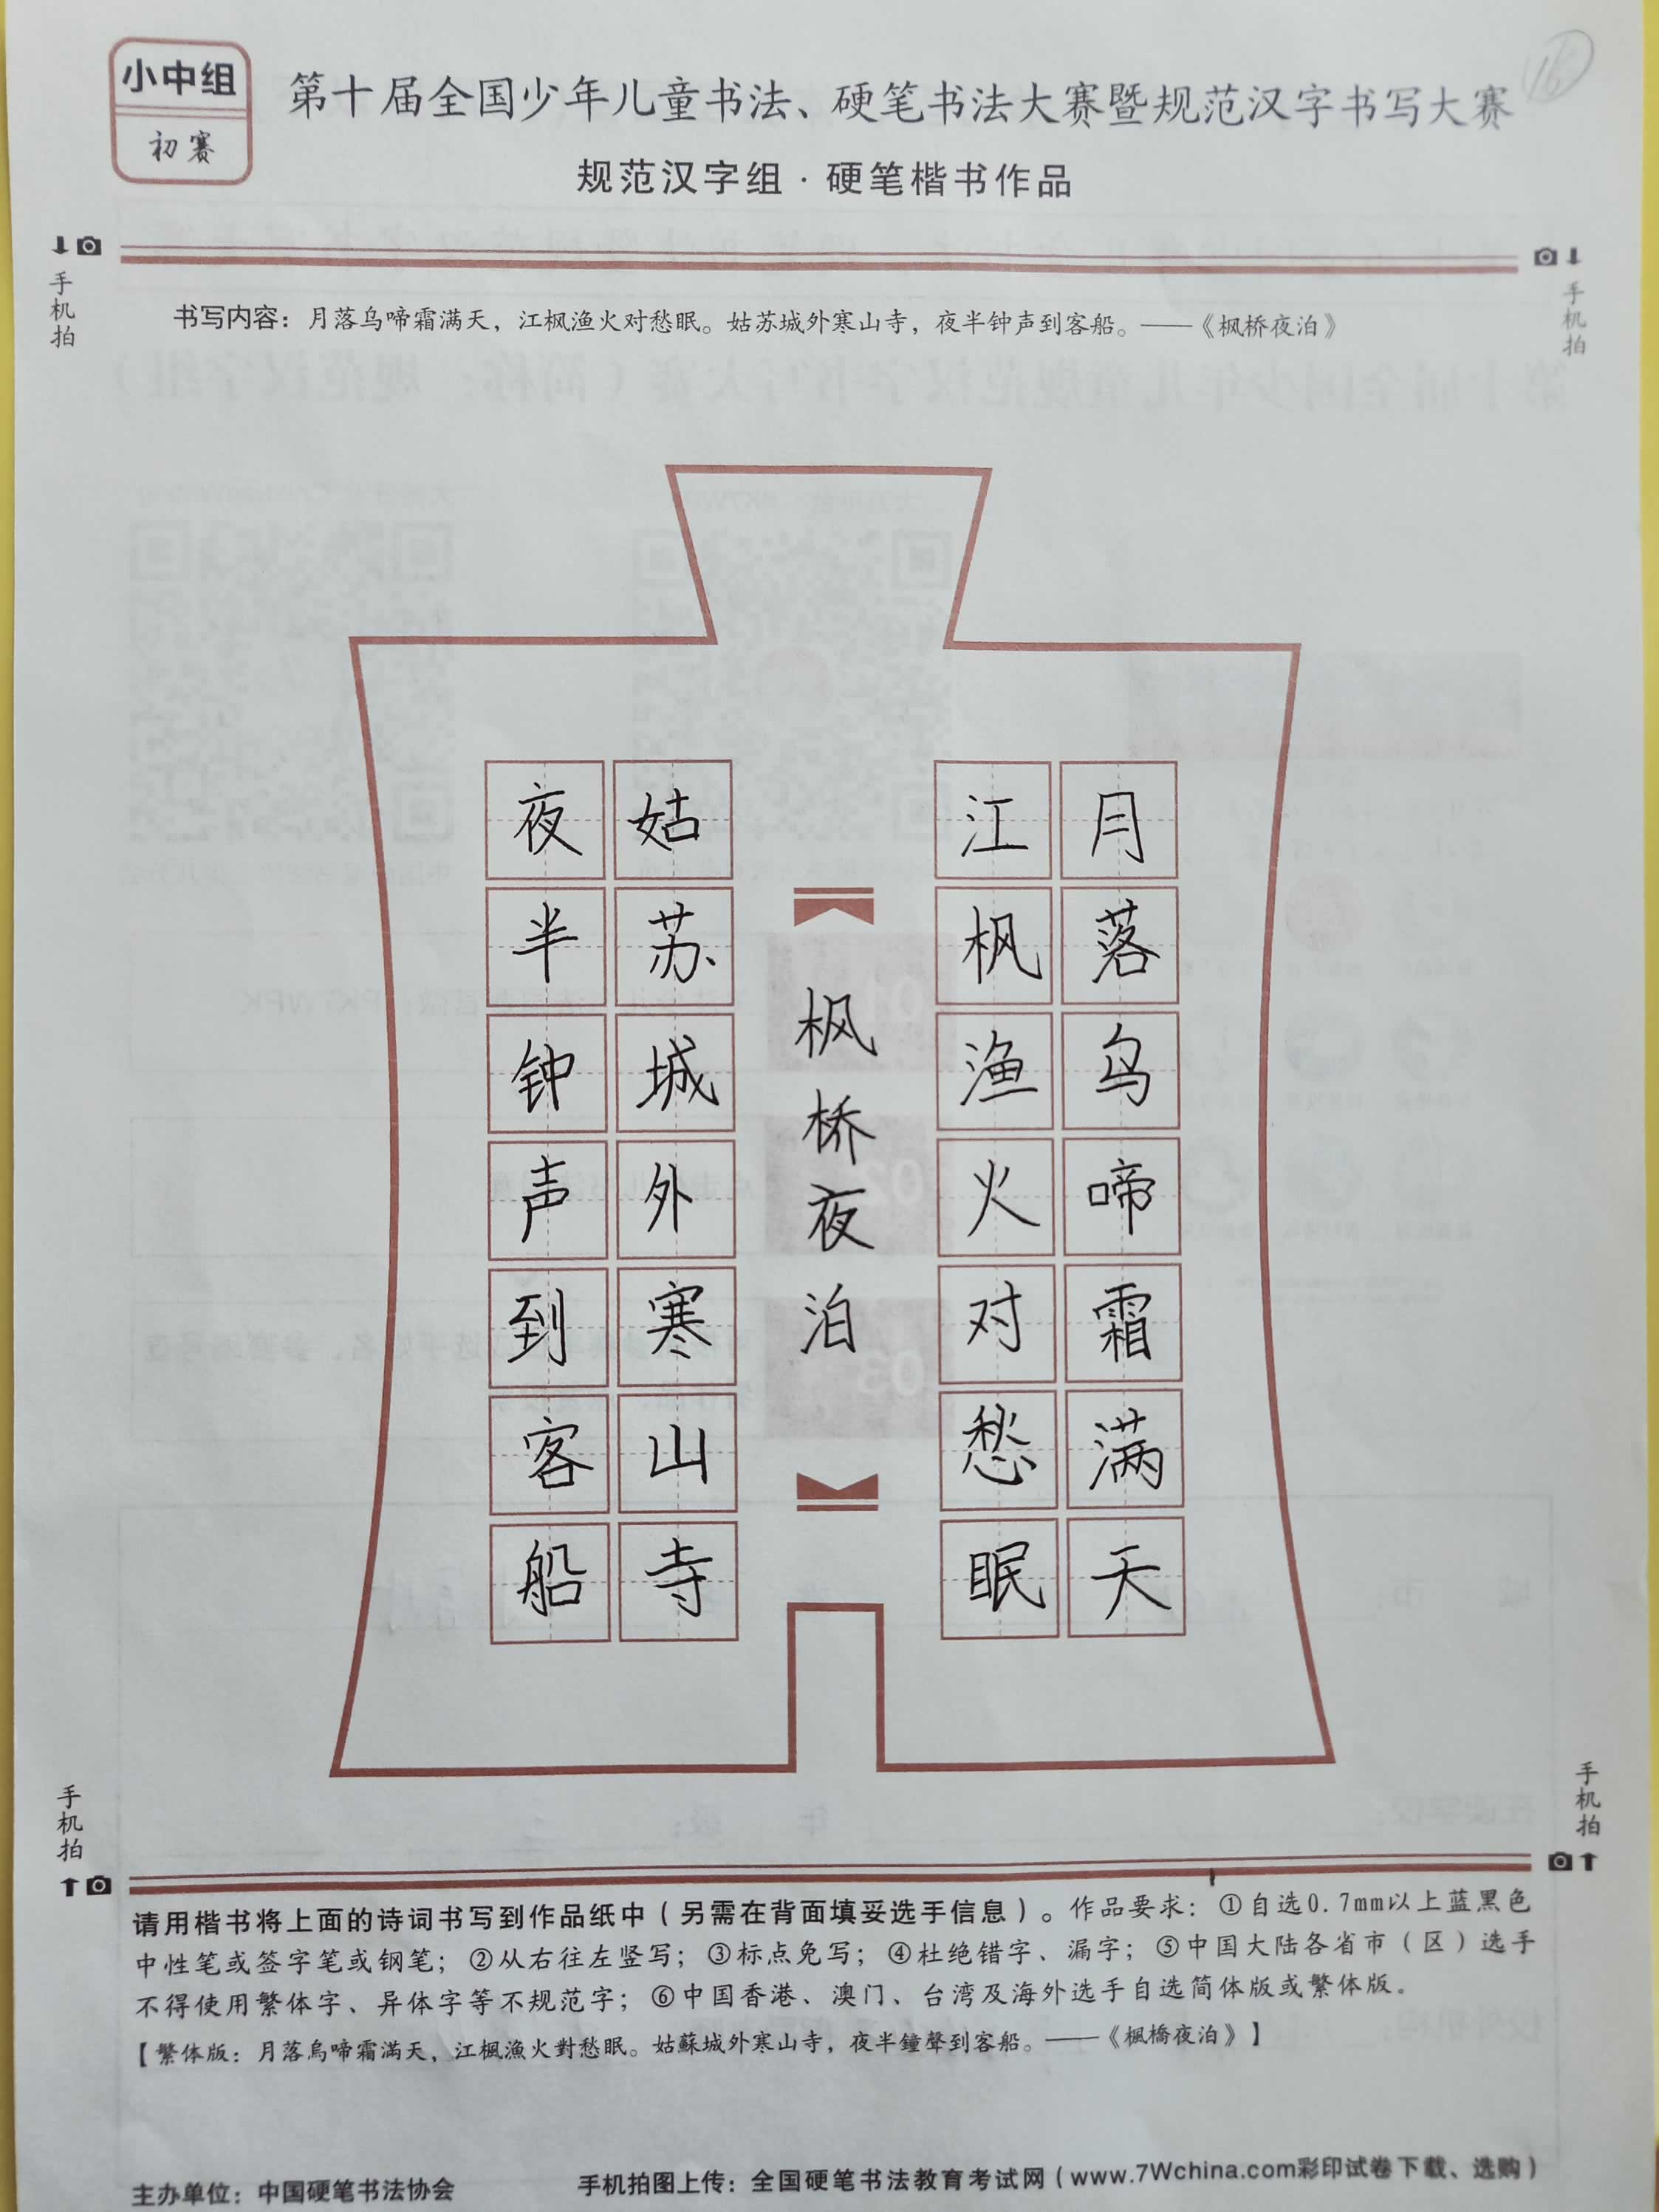 小中组
初赛
16
第十届全国少年儿童书法、硬笔书法大赛暨规范汉字书写大赛
规范汉字组·硬笔楷书作品
手机拍
手机拍
书写内容：月落乌啼霜满天，江枫渔火对愁眠。姑苏城外寒山寺，夜半钟声到客船。——《枫桥夜泊》
月落乌啼霜满天
江枫渔火对愁眠
枫桥夜泊
姑苏城外寒山寺
夜半钟声到客船
手机拍
手机拍
请用楷书将上面的诗词书写到作品纸中（另需在背面填妥选手信息）。作品要求：①自选0.7mm以上蓝黑色
中性笔或签字笔或钢笔；②从右往左竖写；③标点免写；④杜绝错字、漏字；⑤中国大陆各省市（区）选手
不得使用繁体字、异体字等不规范字；⑥中国香港、澳门、台湾及海外选手自选简体版或繁体版。
【繁体版：月落烏啼霜滿天，江楓漁火對愁眠。姑蘇城外寒山寺，夜半鐘聲到客船。——《楓橋夜泊》】
主办单位：中国硬笔书法协会
手机拍图上传：全国硬笔书法教育考试网（www.7Wchina.com彩印试卷下载、选购）